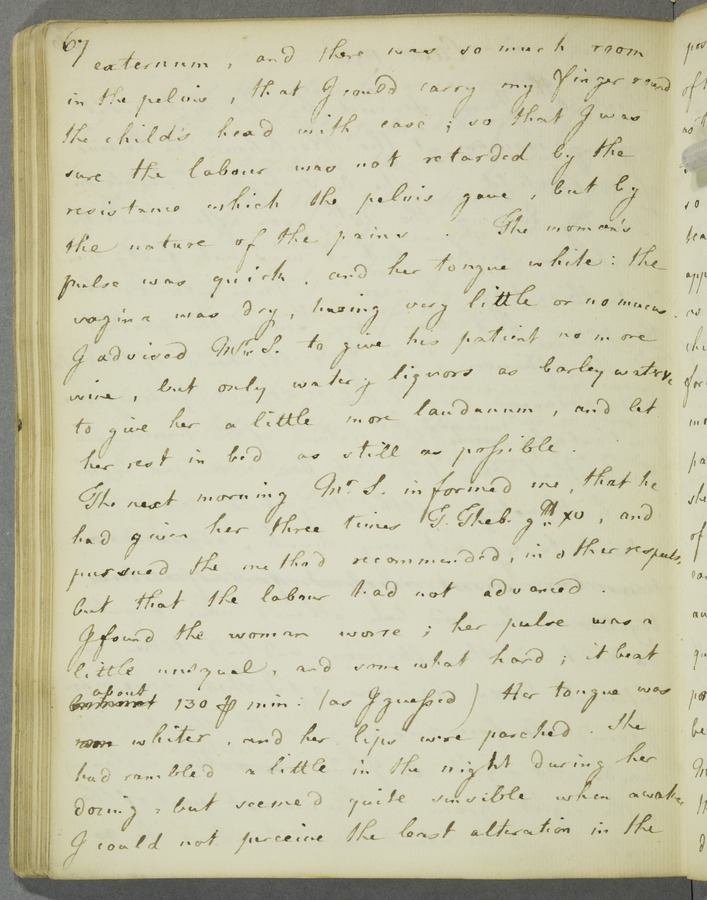 67
externum, and there was so much room
in the pelvis, that I could carry my finger round
the child's head with ease; so that I was
sure the labour was not retarded by the
resistance which the pelvis gave, but by
the nature of the pains. The woman's
pulse was quick, and her tongue white: the
vagina was dry, having very little or no mucus.
I advised Mr. S. to give his patient no more
wine, but only watery liquors as barley water &c
to give her a little more laudanum, and let
her rest in bed as still as possible.
The next morning Mr. S. informed me, that he
had given her three times T. Theb. gtt xv, and
pursued the method recommended, in other respects,
but that the labour had not advanced.
I found the woman worse; her pulse was a
little unequal, and somewhat hard; it beat
about 130 p min: (as I guessed) Her tongue was
whiter, and her lips were parched. She
had rambled a little in the night during her
dozing, but seemed quite sensible when awake
I could not perceive the least alteration in the